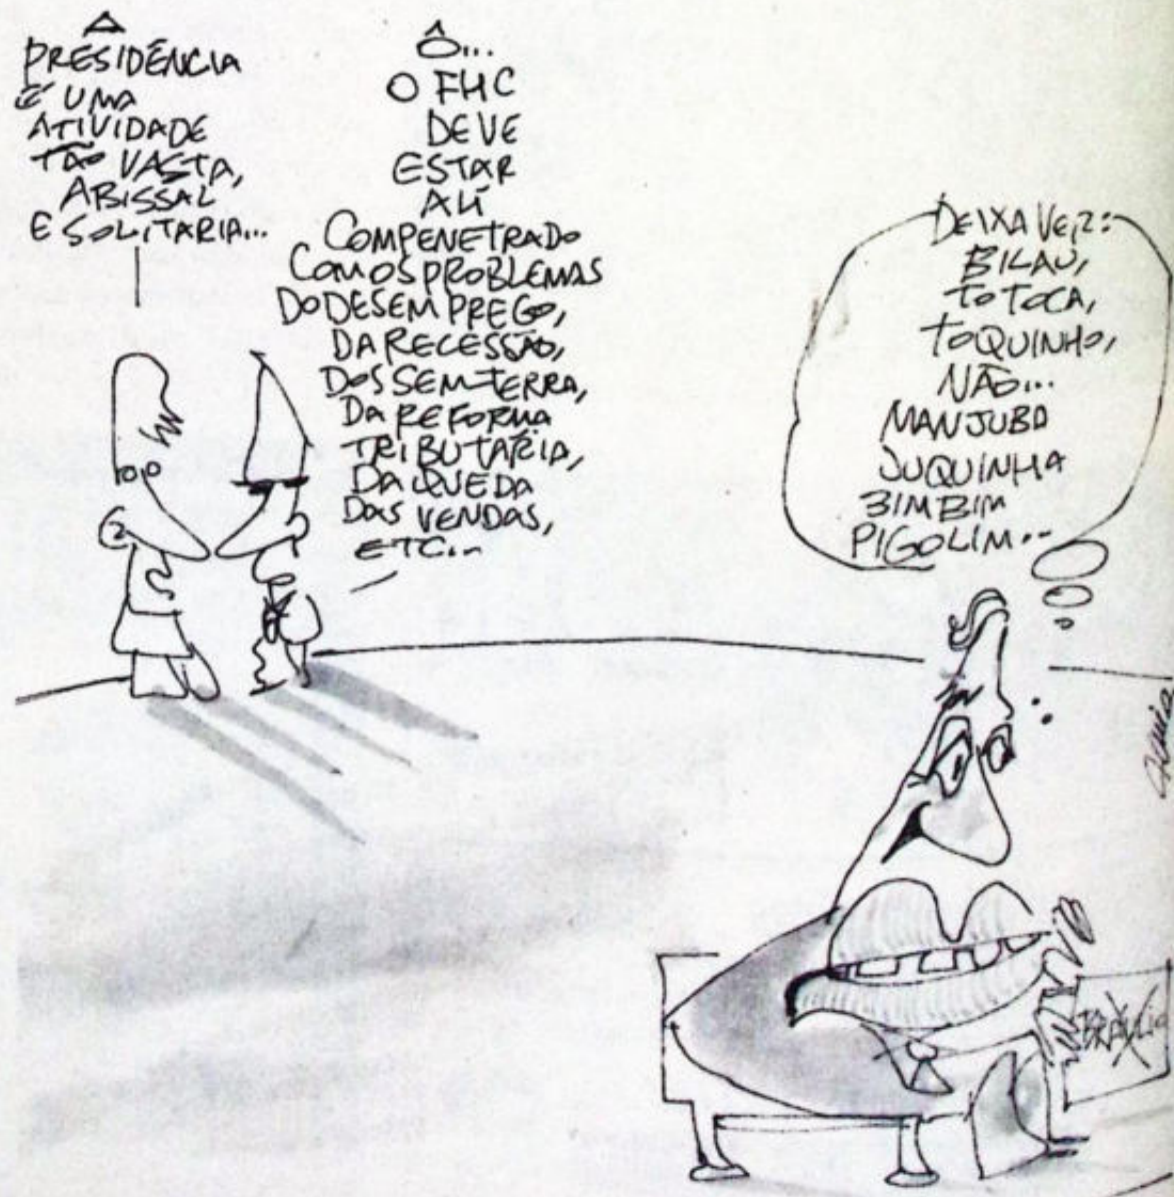 A
PRESIDÊNCIA
É UMA
ATIVIDADE
TÃO VASTA,
ABISSAL
E SOLITARIA...
Ô...
O FHC
DEVE
ESTAR
ALÍ
COMPENETRADO
COM OS PROBLEMAS
DO DESEMPREGO,
DA RECESSÃO,
DOS SEM-TERRA,
DA REFORMA
TRIBUTÁRIA,
DA QUEDA
DAS VENDAS,
ETC...
DEIXA VER:
BILAU,
TOTOCA,
TOQUINHO,
NÃO...
MANJUBA
JUQUINHA
BIMBIM
PIGOLIM...
BRÁULIO